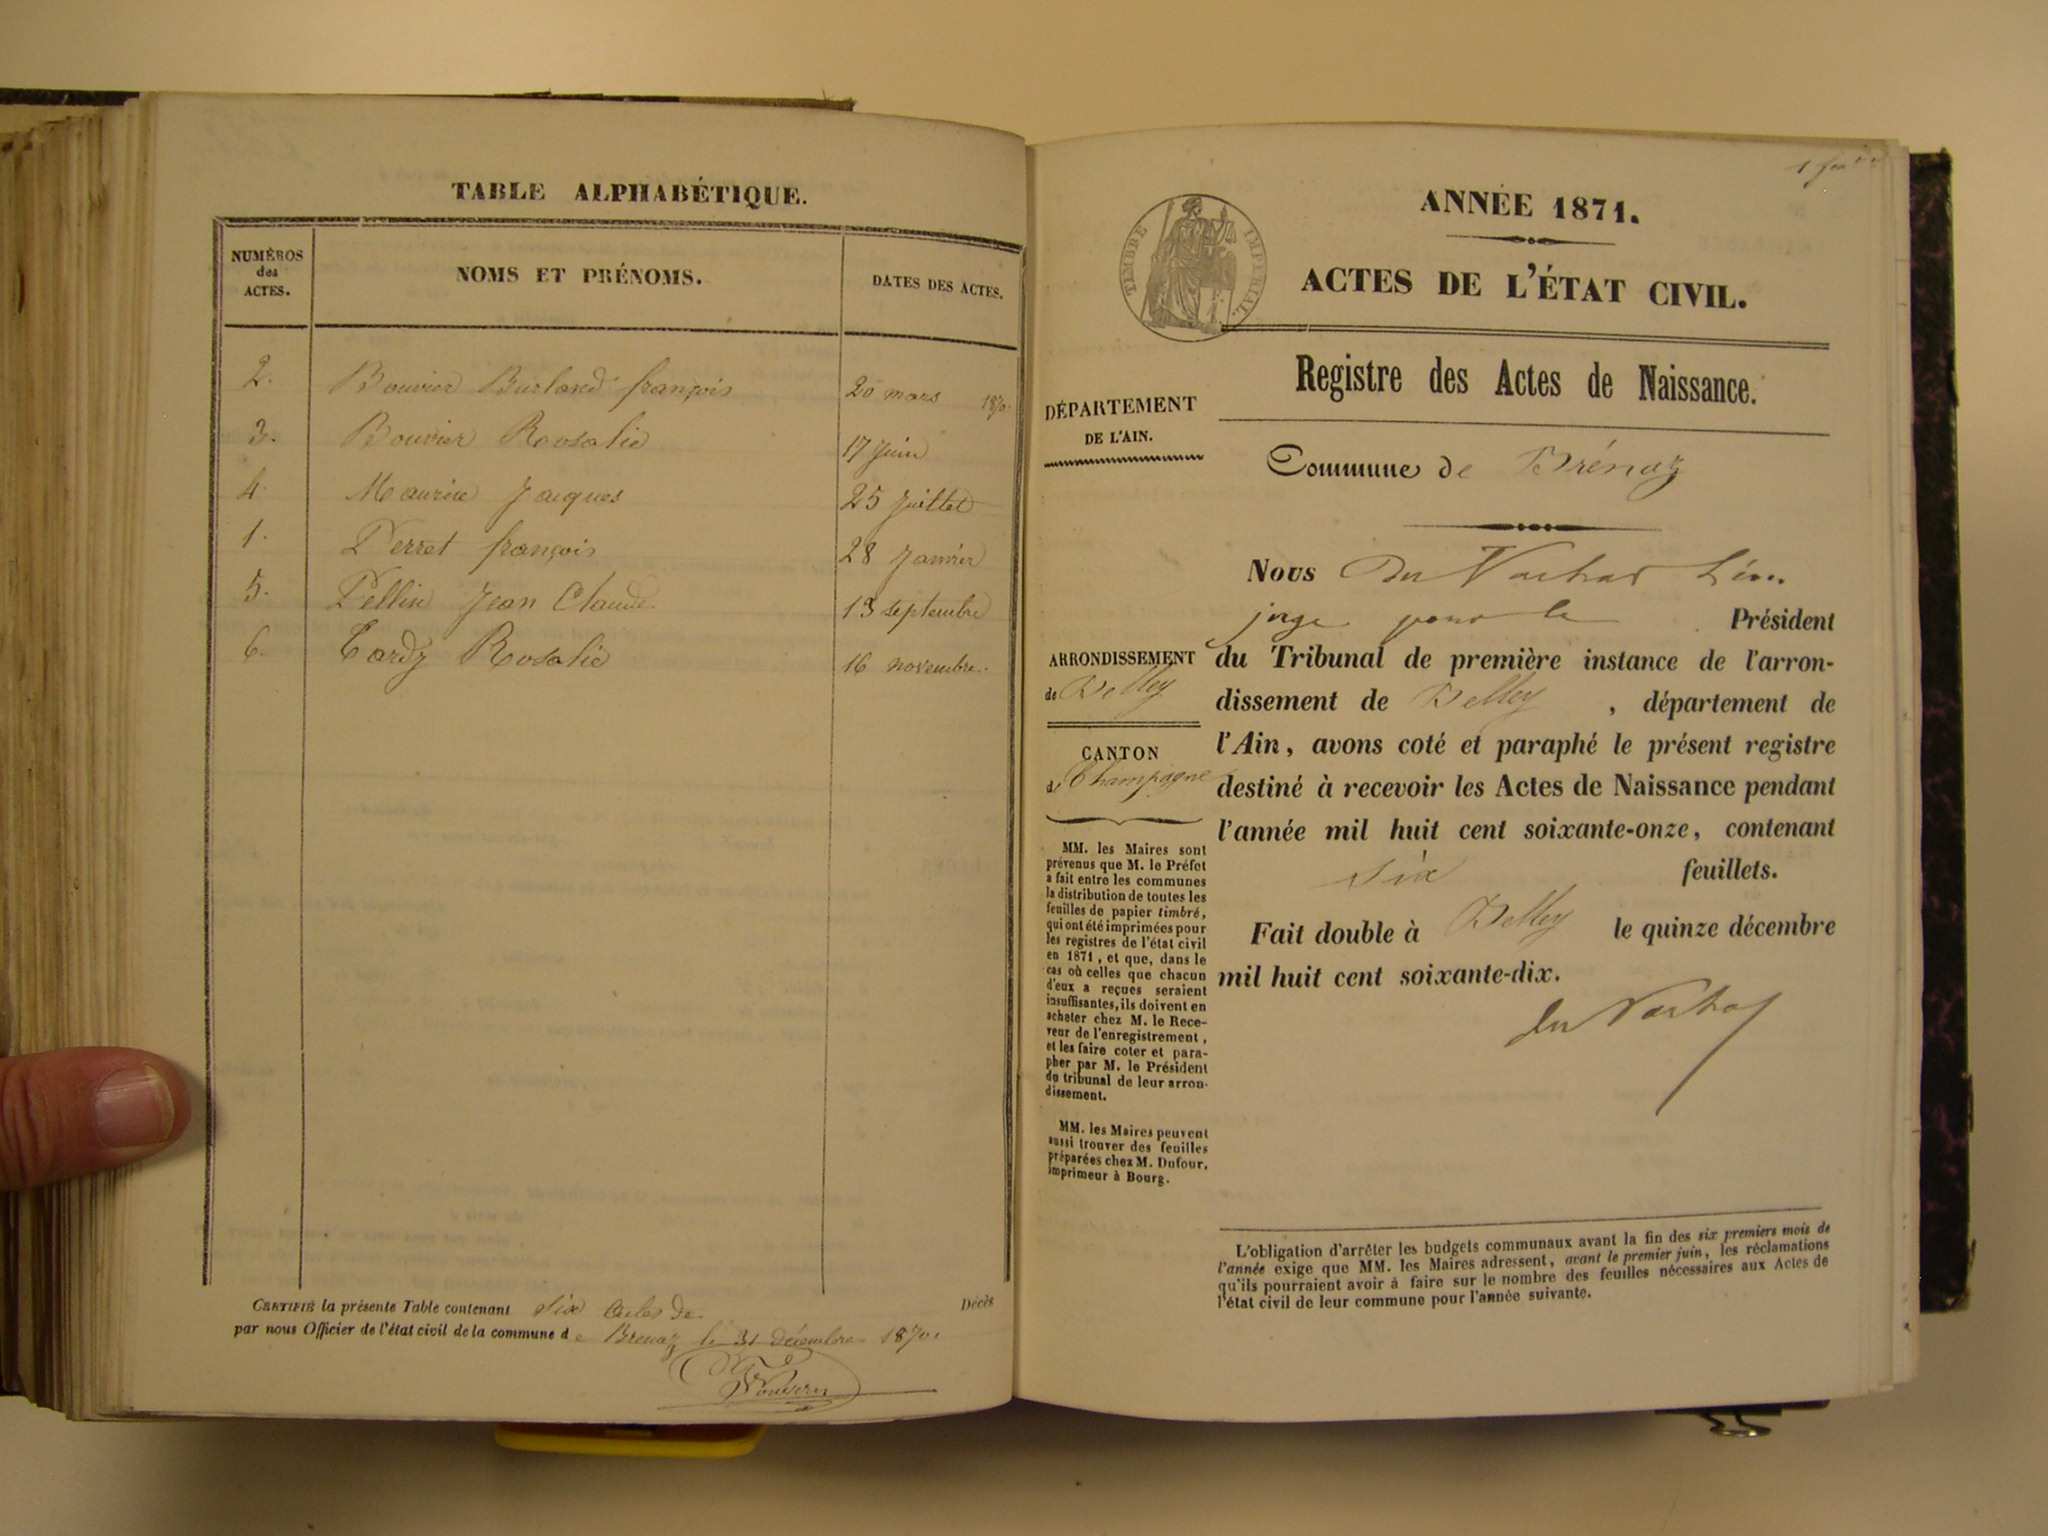 TABLE ALPHABÉTIQUE.
NUMÉROS des ACTES.
NOMS ET PRÉNOMS.
DATES DES ACTES.
2. Bouvier Burland françois 20 mars 1870.
3. Bouvier Roosalie 17 Juin
4. Maurice Jacques 25 Juillet
1. Perret françois 28 Janvier
5. Pellin Jean Claude 13 septembre
6. Tardy Rosalie 16 novembre.
CERTIFIÉ la présente Table contenant six actes de Décès
par nous Officier de l'état civil de la commune de Brenaz le 31 décembre 1870.
Bouvier
ANNÉE 1871.
TIMBRE IMPÉRIAL
ACTES DE L'ÉTAT CIVIL.
Registre des Actes de Naissance.
DÉPARTEMENT
DE L'AIN.
Commune de Brénaz
ARRONDISSEMENT
de Belley
CANTON
de Champagne
MM. les Maires sont
prévenus que M. le Préfet
a fait entre les communes
la distribution de toutes les
feuilles de papier timbré,
qui ont été imprimées pour
les registres de l'état civil
en 1871, et que, dans le
cas où celles que chacun
d'eux a reçues seraient
insuffisantes, ils doivent en
acheter chez M. le Rece-
veur de l'enregistrement,
et les faire coter et para-
pher par M. le Président
du tribunal de leur arron-
dissement.
MM. les Maires peuvent
aussi trouver des feuilles
préparées chez M. Dufour,
imprimeur à Bourg.
Nous
juge pour le Président
du Tribunal de première instance de l'arron-
dissement de Belley, département de
l'Ain, avons coté et paraphé le présent registre
destiné à recevoir les Actes de Naissance pendant
l'année mil huit cent soixante-onze, contenant
six feuillets.
Fait double à Belley le quinze décembre
mil huit cent soixante-dix.
L'obligation d'arrêter les budgets communaux avant la fin des six premiers mois de
l'année exige que MM. les Maires adressent, avant le premier juin, les réclamations
qu'ils pourraient avoir à faire sur le nombre des feuilles nécessaires aux Actes de
l'état civil de leur commune pour l'année suivante.